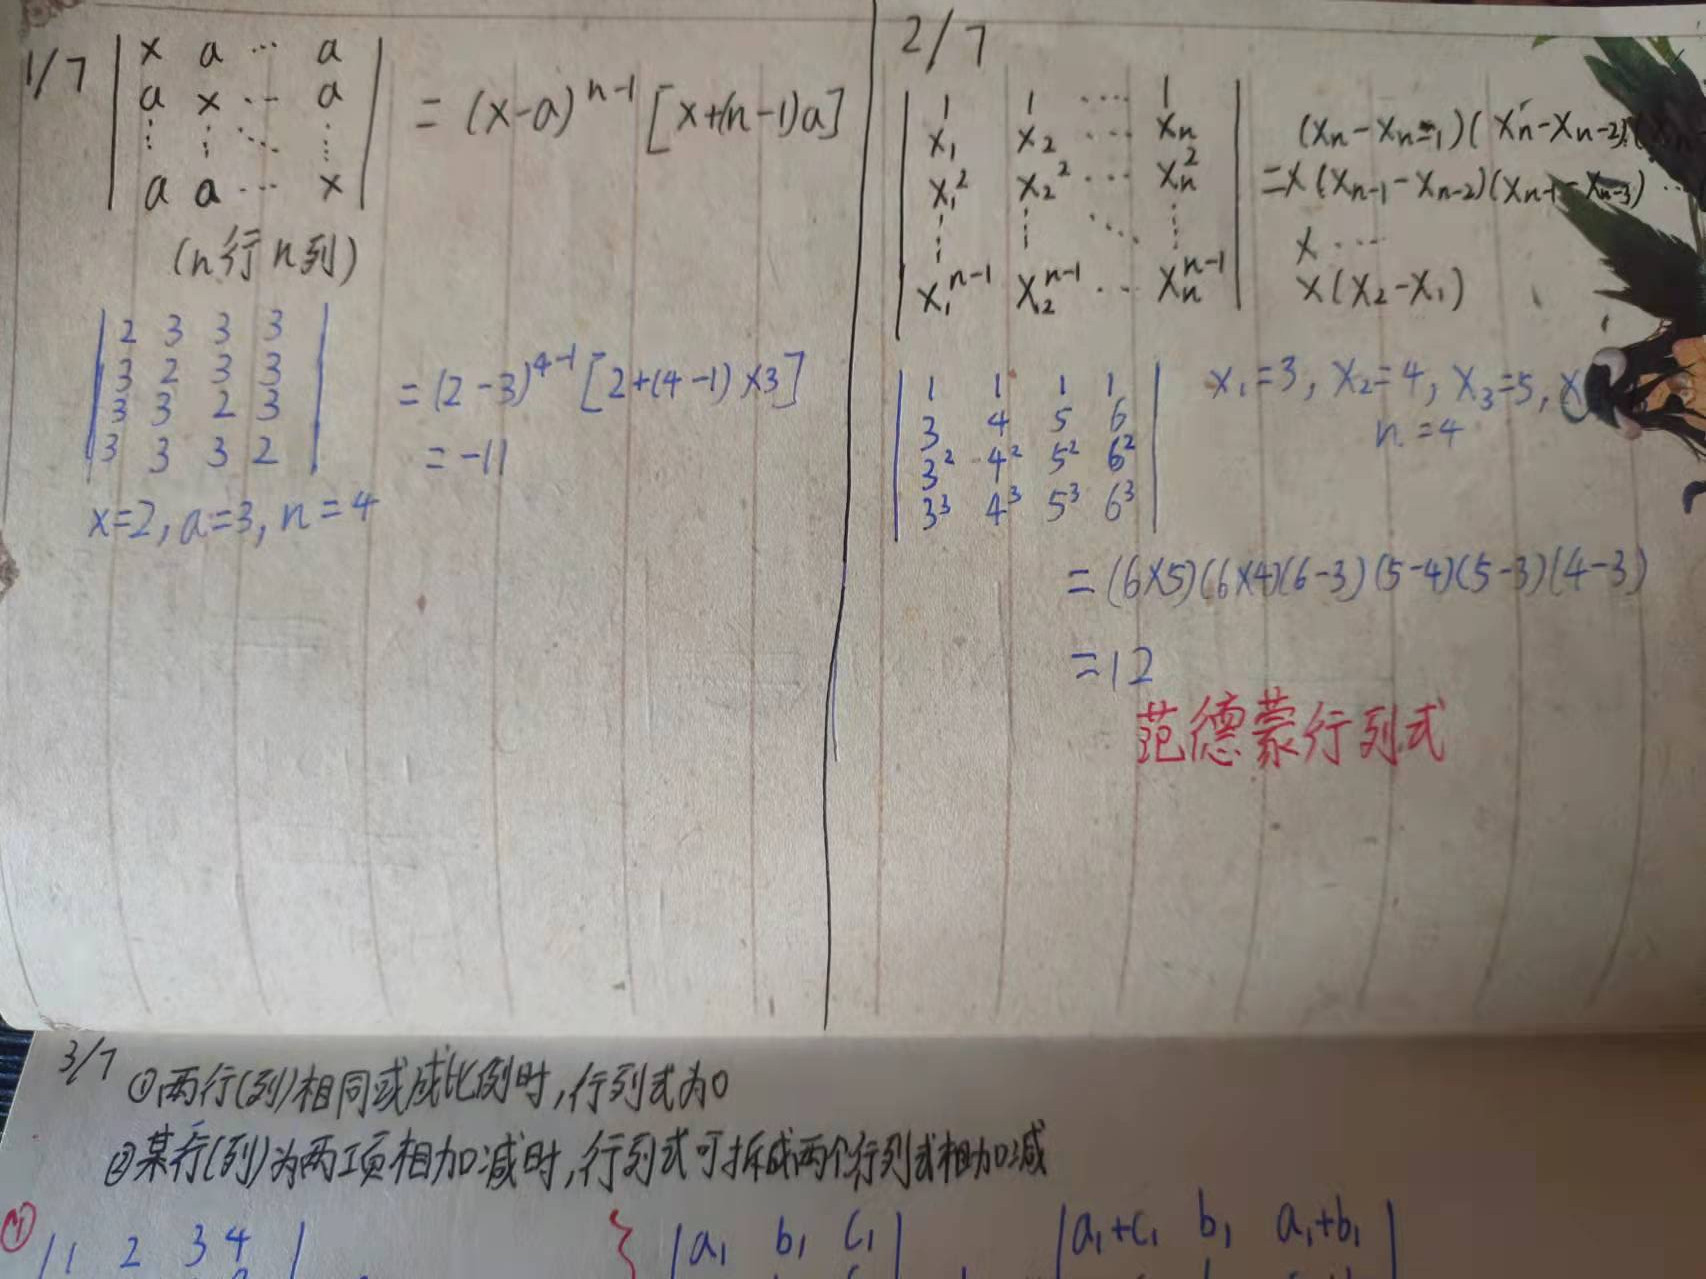 1/7
x a ... a
a x ... a
⋮ ⋮ ⋱ ⋮
a a ... x
= (x-a)^{n-1} [x+(n-1)a]
(n行n列)
2 3 3 3
3 2 3 3
3 3 2 3
3 3 3 2
= (2-3)^{4-1} [2+(4-1)×3]
= -11
x=2, a=3, n=4
2/7
1 1 ... 1
x₁ x₂ ... xₙ
x₁² x₂² ... xₙ²
⋮ ⋮ ⋱ ⋮
x₁^{n-1} x₂^{n-1} ... xₙ^{n-1}
(xₙ-xₙ₋₁)(xₙ-xₙ₋₂)(
=x(xₙ₋₁-xₙ₋₂)(xₙ₋₁-xₙ₋₃)...
x ...
x(x₂-x₁)
1 1 1 1
3 4 5 6
3² 4² 5² 6²
3³ 4³ 5³ 6³
x₁=3, x₂=4, x₃=5, x
n=4
= (6×5)(6×4)(6-3)(5-4)(5-3)(4-3)
=12
范德蒙行列式
3/7
①两行(列)相同或成比例时,行列式为0
②某行(列)为两项相加减时,行列式可拆成两个行列式相加减
①
1 2 3 4
a₁ b₁ c₁
a₁+c₁ b₁ a₁+b₁